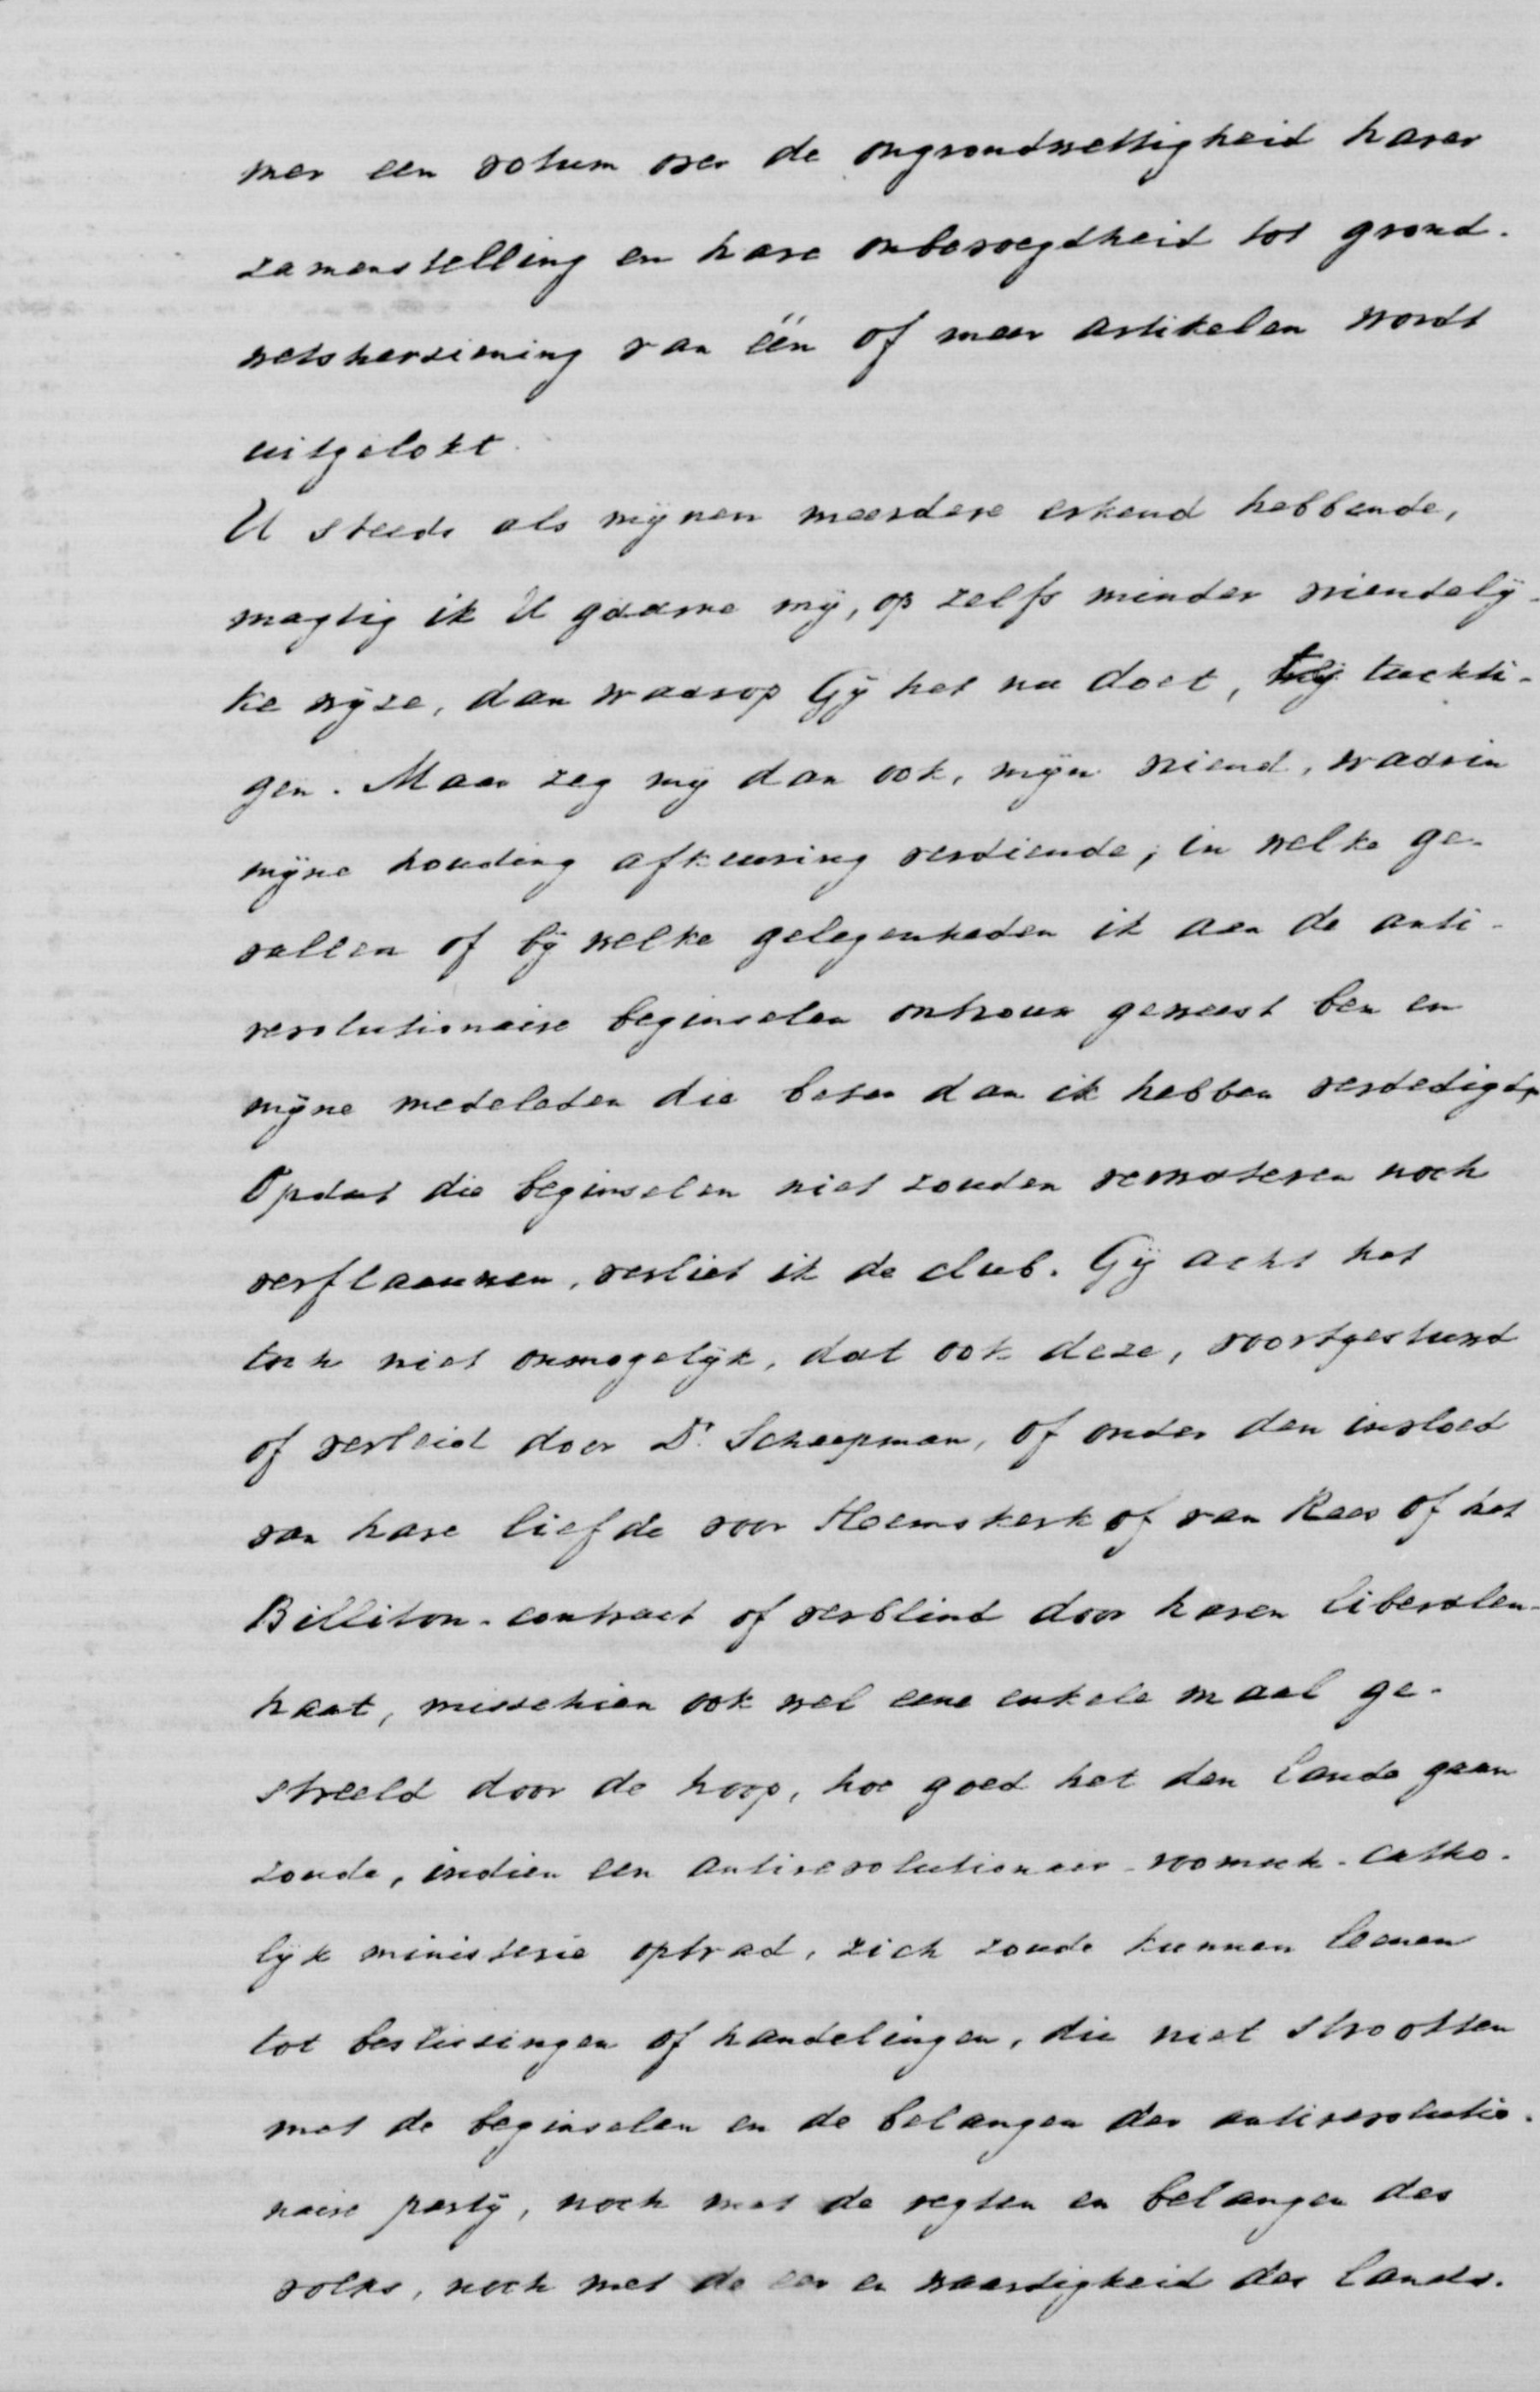 mer een votum over de ongrondwettigheid harer
zamenstelling en hare onbevoegdheid tot grond-
wetsherziening van één of meer artikelen wordt
uitgelokt.
U steeds als mijnen meerdere erkend hebbende,
magtig ik U gaarne mij, op zelfs minder vriendelij-
ke wijze, dan waarop Gij het nu doet, te tuchti-
gen. Maar zeg mij dan ook, mijn vriend, waarin
mijne houding afkeuring verdiende; in welke ge-
vallen of bij welke gelegenheden ik aan de anti-
revolutionaire beginselen ontrouw geweest ben en
mijne medeleden die beter dan ik hebben verdedigd.
Opdat die beginselen niet zouden verwateren noch
verflaauwen, verliet ik de club. Gij acht het
toch niet onmogelijk, dat ook deze, voortgestuwd
of verleid door Dr. Schaepman, of onder den invloed
van hare liefde voor Heemskerk of van Rees of het
Billiton-contract of verblind door haren liberalen-
haat, misschien ook wel eene enkele maal ge-
streeld door de hoop, hoe goed het den lande gaan
zoude, indien een antirevolutionair-roomsch-catho-
lijk ministerie optrad, zich zoude kunnen leenen
tot beslissingen of handelingen, die niet strookten
met de beginselen en de belangen der antirevolutio-
naire partij, noch met de regten en belangen des
volks, noch met de eer en waardigheid des lands.